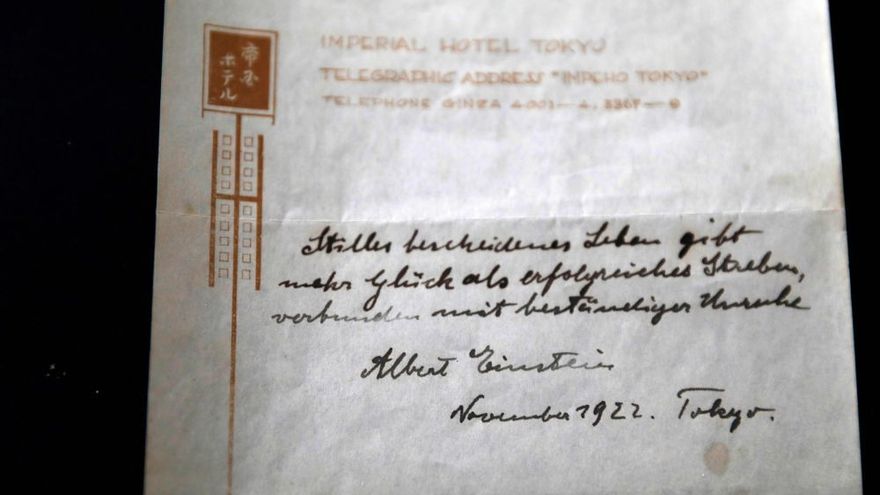 帝国
ホテル
IMPERIAL HOTEL TOKYO
TELEGRAPHIC ADDRESS "IMPEHO TOKYO"
TELEPHONE GINZA 4001—4.
Stilles bescheidenes Leben gibt
mehr Glück als erfolgreiches Streben,
verbunden mit beständiger Unruhe
Albert Einstein
November 1922. Tokyo.